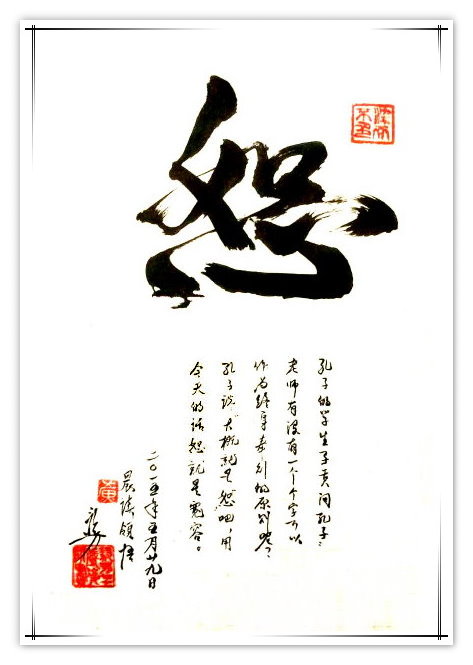 恕
孔子的学生子贡问孔子：
老师有没有一个字可以
作为终身奉行的原则呢？
孔子说“大概就是恕吧”，用
今天的话恕就是宽容。
二〇一五年五月廿九日
黄